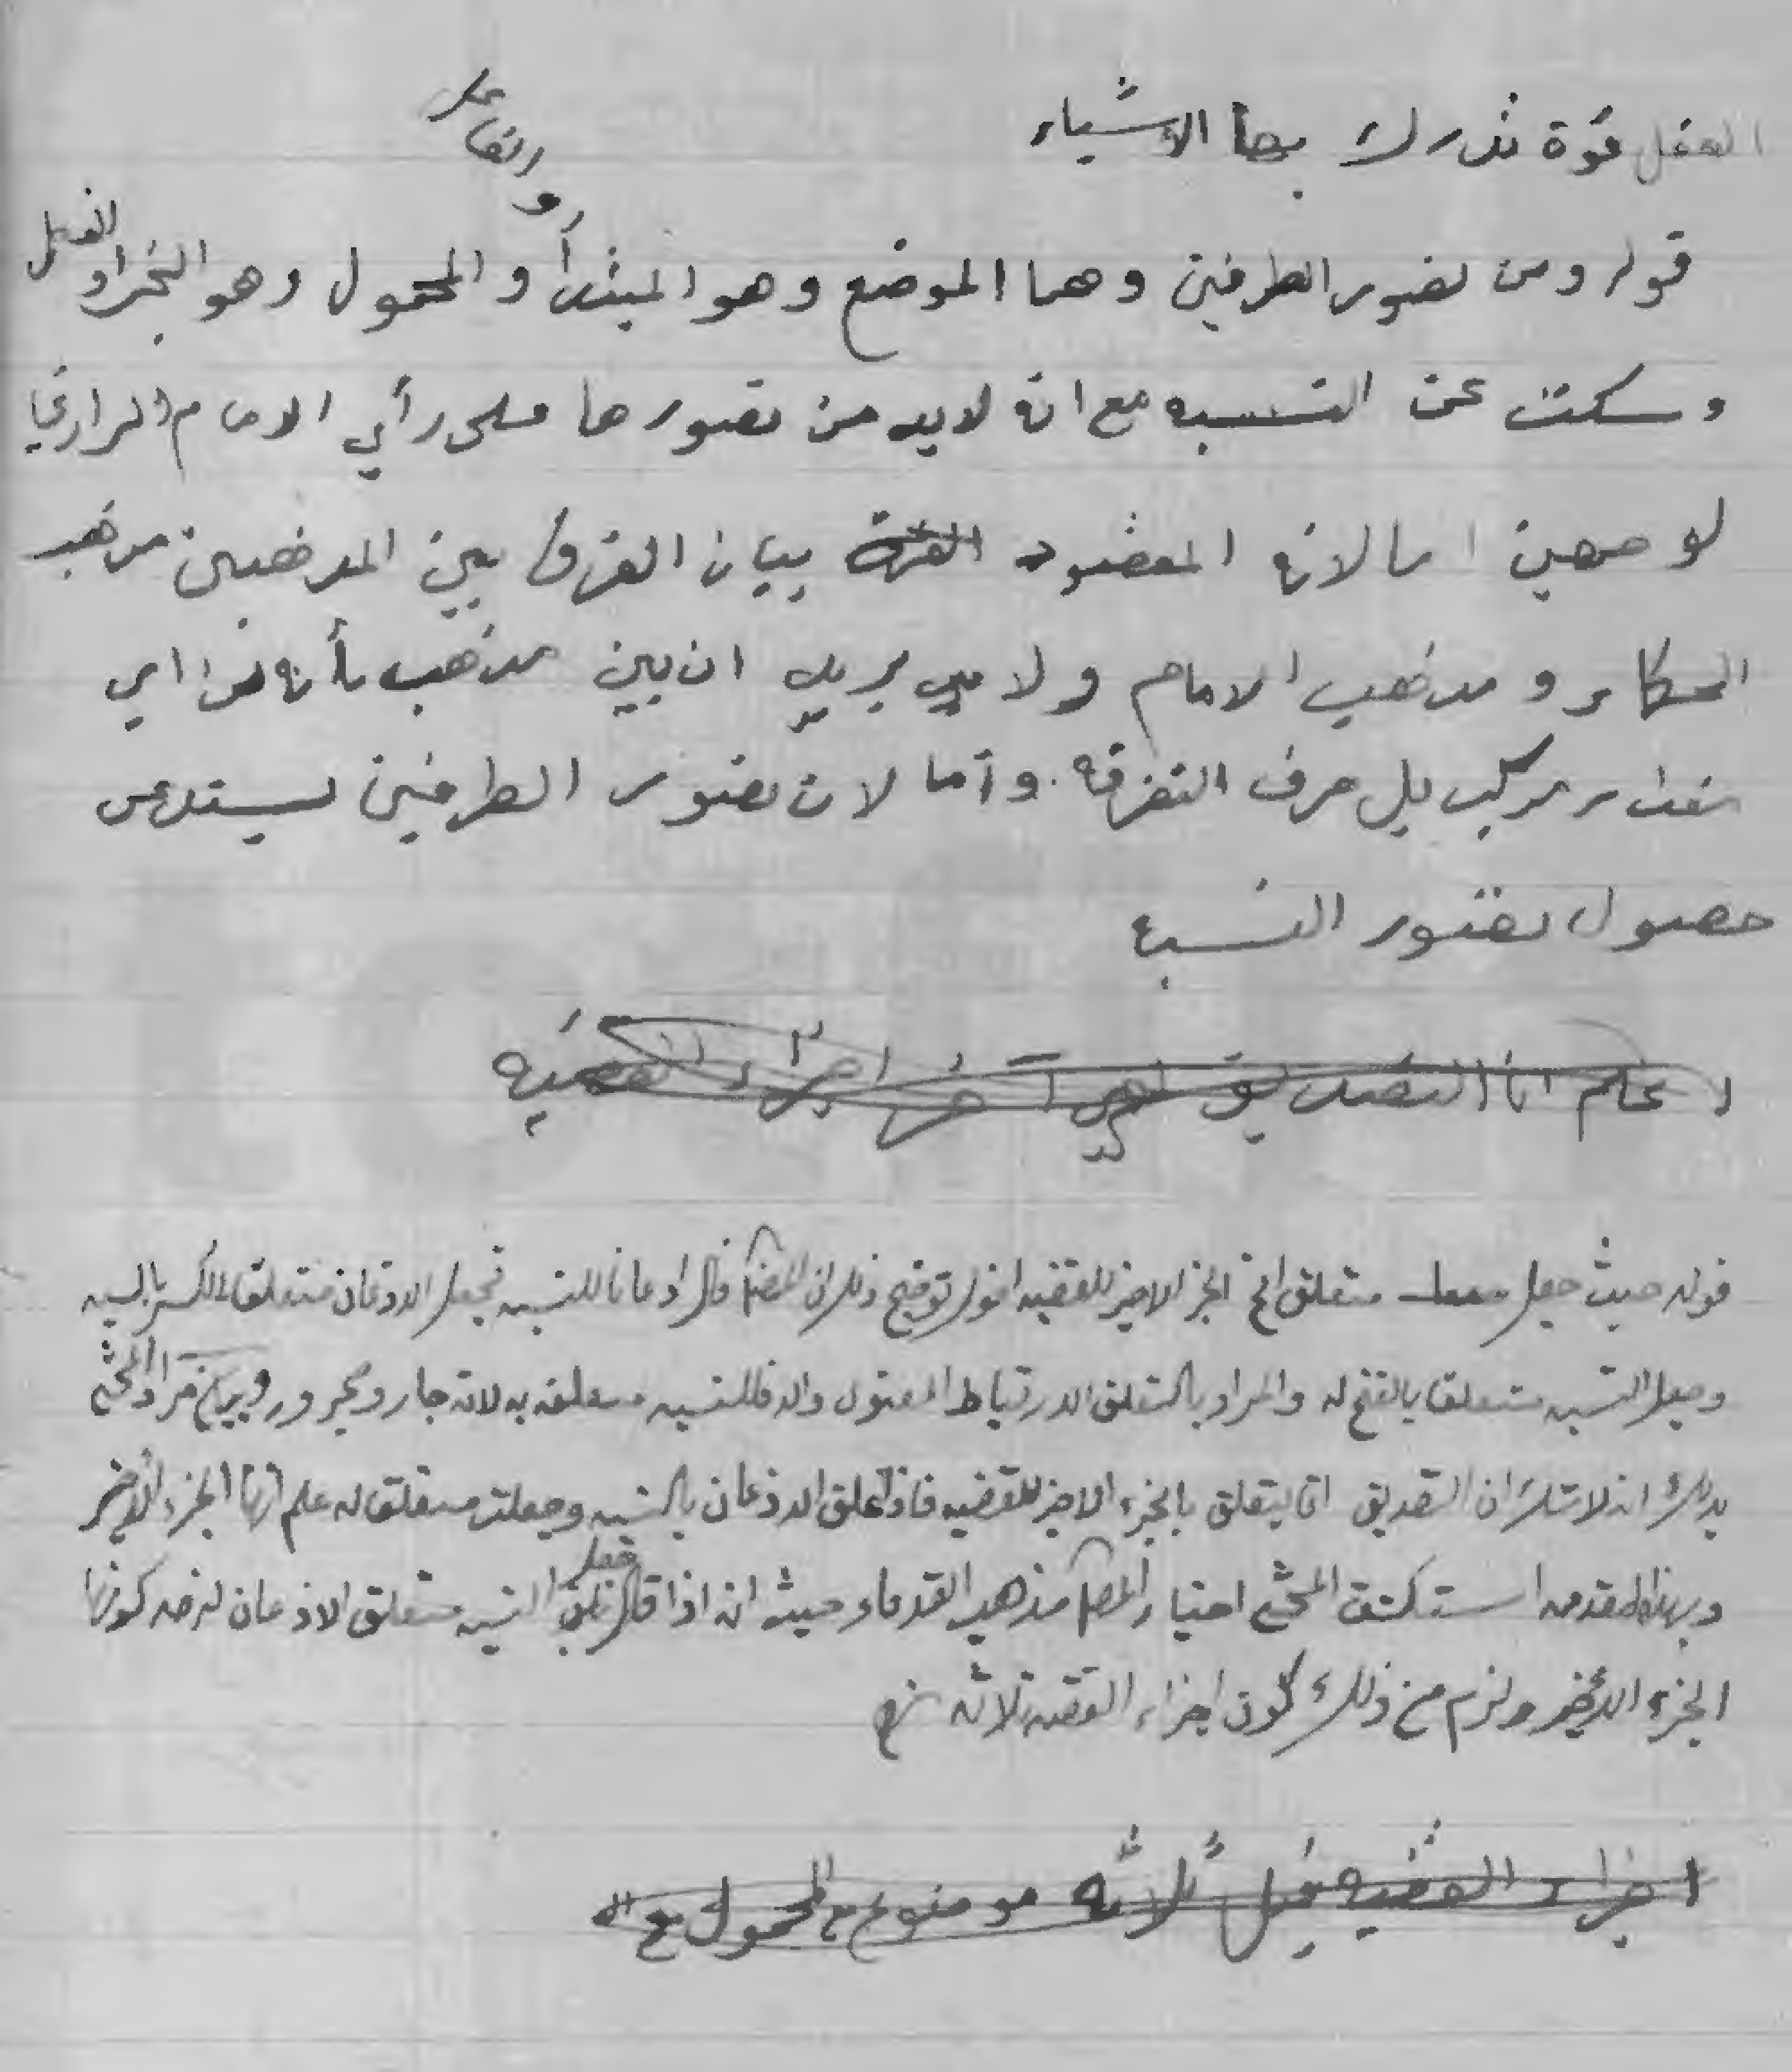 العقل قوة تدرك بها الأشياء
قوله ومن تصور الطرفين وهما الموضع وهو المبتدأ والمحمول وهو الخبر او الفعل
او والفاعل
وسكت عن النسبه مع انه لابد من تصورها على رأي الامام الرازي
لوجهين اما لانه المقصود بيان الفرق بين المذهبين مذهب
الحكماء ومذهب الامام ولا يريد ان بين مذهب بأنه
مركب بل حرف التفرقه. وأما لان تصور الطرفين يستدعى
حصول تصور النسبه
اعلم ان التصديق آخر اجزاء القضيه
قوله حيث جعل متعلق الخ الجزء الاخير للقضيه اقول توضيح ذلك ان المص قال اذعانا للنسبه فجعل الاذعان متعلقا بالكسر بالنسبه
وجعل النسبه متعلقا بالفتح له والمراد بالتعلق الارتباط المعنوى والا فللنسبه متعلقه به لانه جار ومجرور وبيان مراد المحشى
بذلك انه لا شك ان التصديق انما يتعلق بالجزء الاخير للقضيه فاذا تعلق الاذعان بالنسبه وجعلت متعلق له علم انها الجزء الأخير
وبهذا المقدمه استكشف المحشى اختيار المص مذهب القدماء حيث انه اذا جعل النسبه متعلق الاذعان لزمه كونها
الجزء الأخير ولزم من ذلك كون اجزاء القضيه ثلاثه
اجزاء القضيه قيل ثلاثه موضوع مع المحمول مع